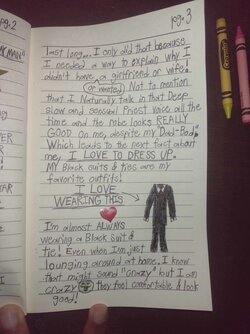 pg.2
pg.3
last long... I only did that because
I needed a way to explain why I
didn't have a girlfriend or wife!
(or wanted) Not to mention
that I Naturally talk in that Deep
slow and sensual Priest voice all the
time and the robe looks REALLY
GOOD on me, despite my "Dad-Bod".
Which leads to the next fact about
me, I LOVE TO DRESS UP.
My Black suits & ties are my
favorite outfits!
I LOVE
WEARING THIS
I'm almost ALWAYS
wearing a Black suit &
tie! Even when I'm just
lounging around at home. I know
that might sound "crazy" but I am
crazy they feel comfortable & look
good!